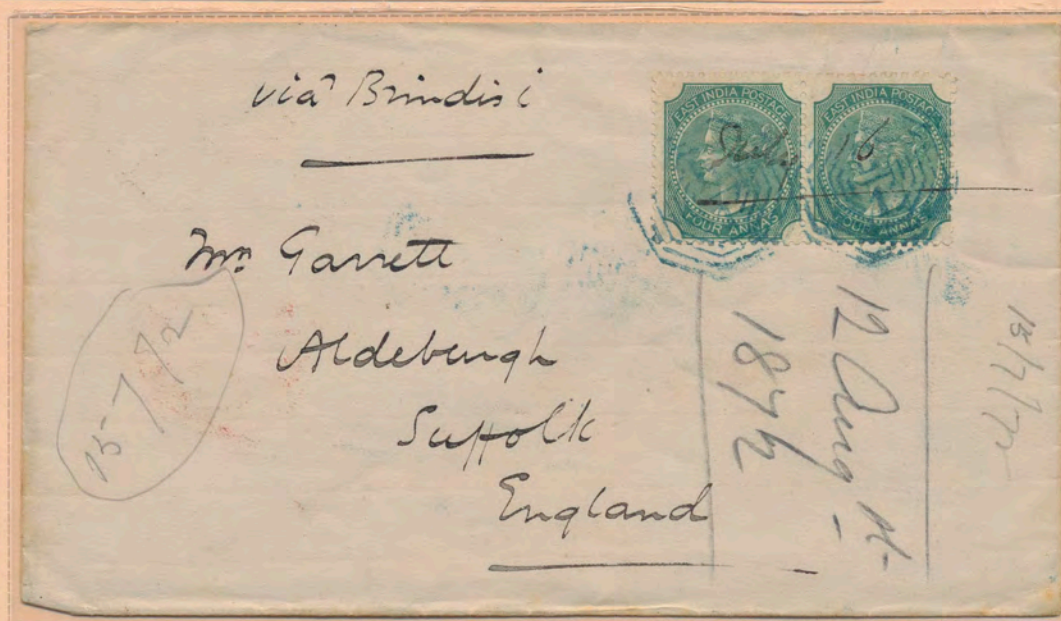 via Brindisi
EAST INDIA POSTAGE
FOUR ANNAS
EAST INDIA POSTAGE
FOUR ANNAS
July 16
Mrs Garrett
Aldeburgh
Suffolk
England
12 Aug
1872